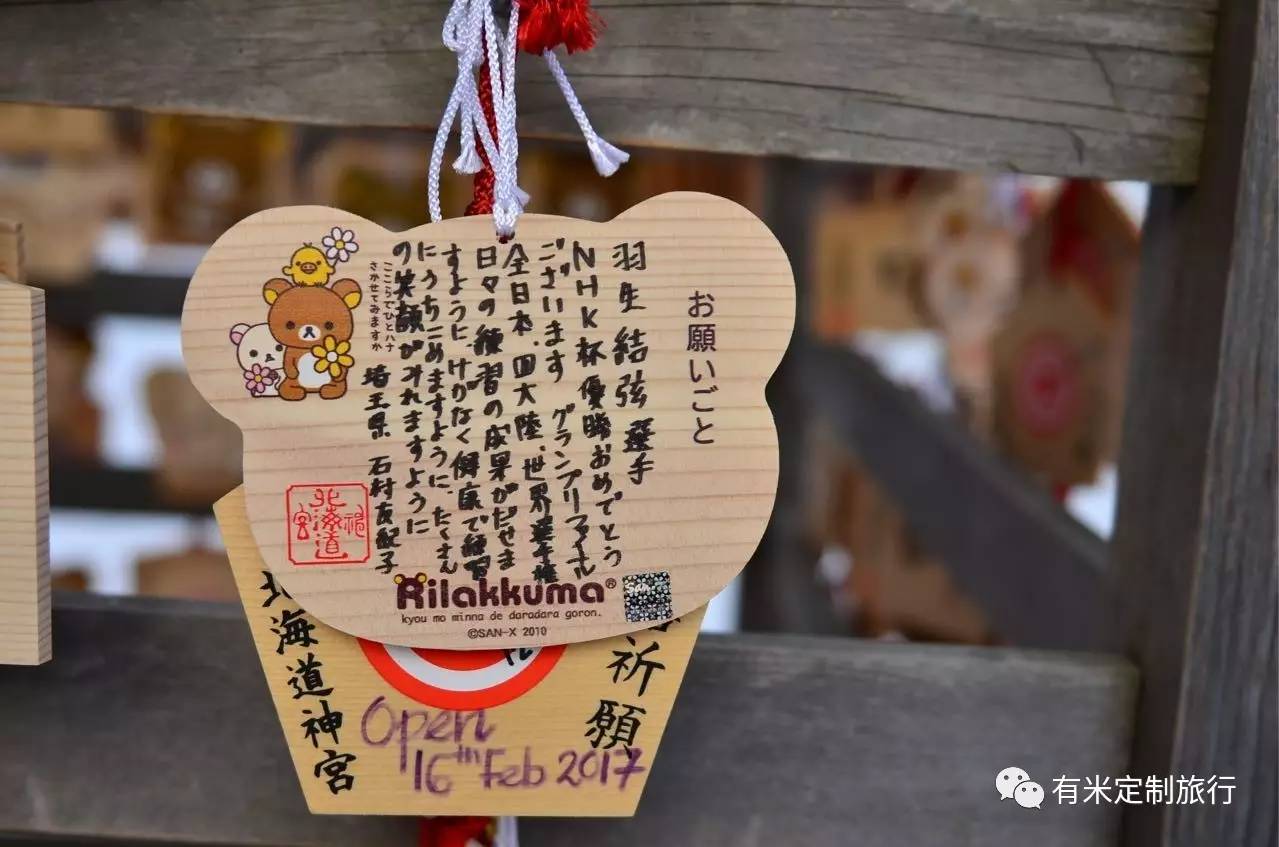 お願いごと
羽生 結弦 選手
NHK杯優勝おめでとう
ございます グランプリファイナル
全日本、四大陸、世界選手権
日々の練習の成果がだせま
すように、けがなく健康で練習
にうちこめますように、たくさん
の笑顔がみれますように
埼玉県 石村友紀子
ここらでひとハナ
さかせてみますか
北海道神宮
Rilakkuma®
kyou mo minna de daradara goron.
©SAN-X 2010
祈願
北海道神宮
Open
16th Feb 2017
有米定制旅行